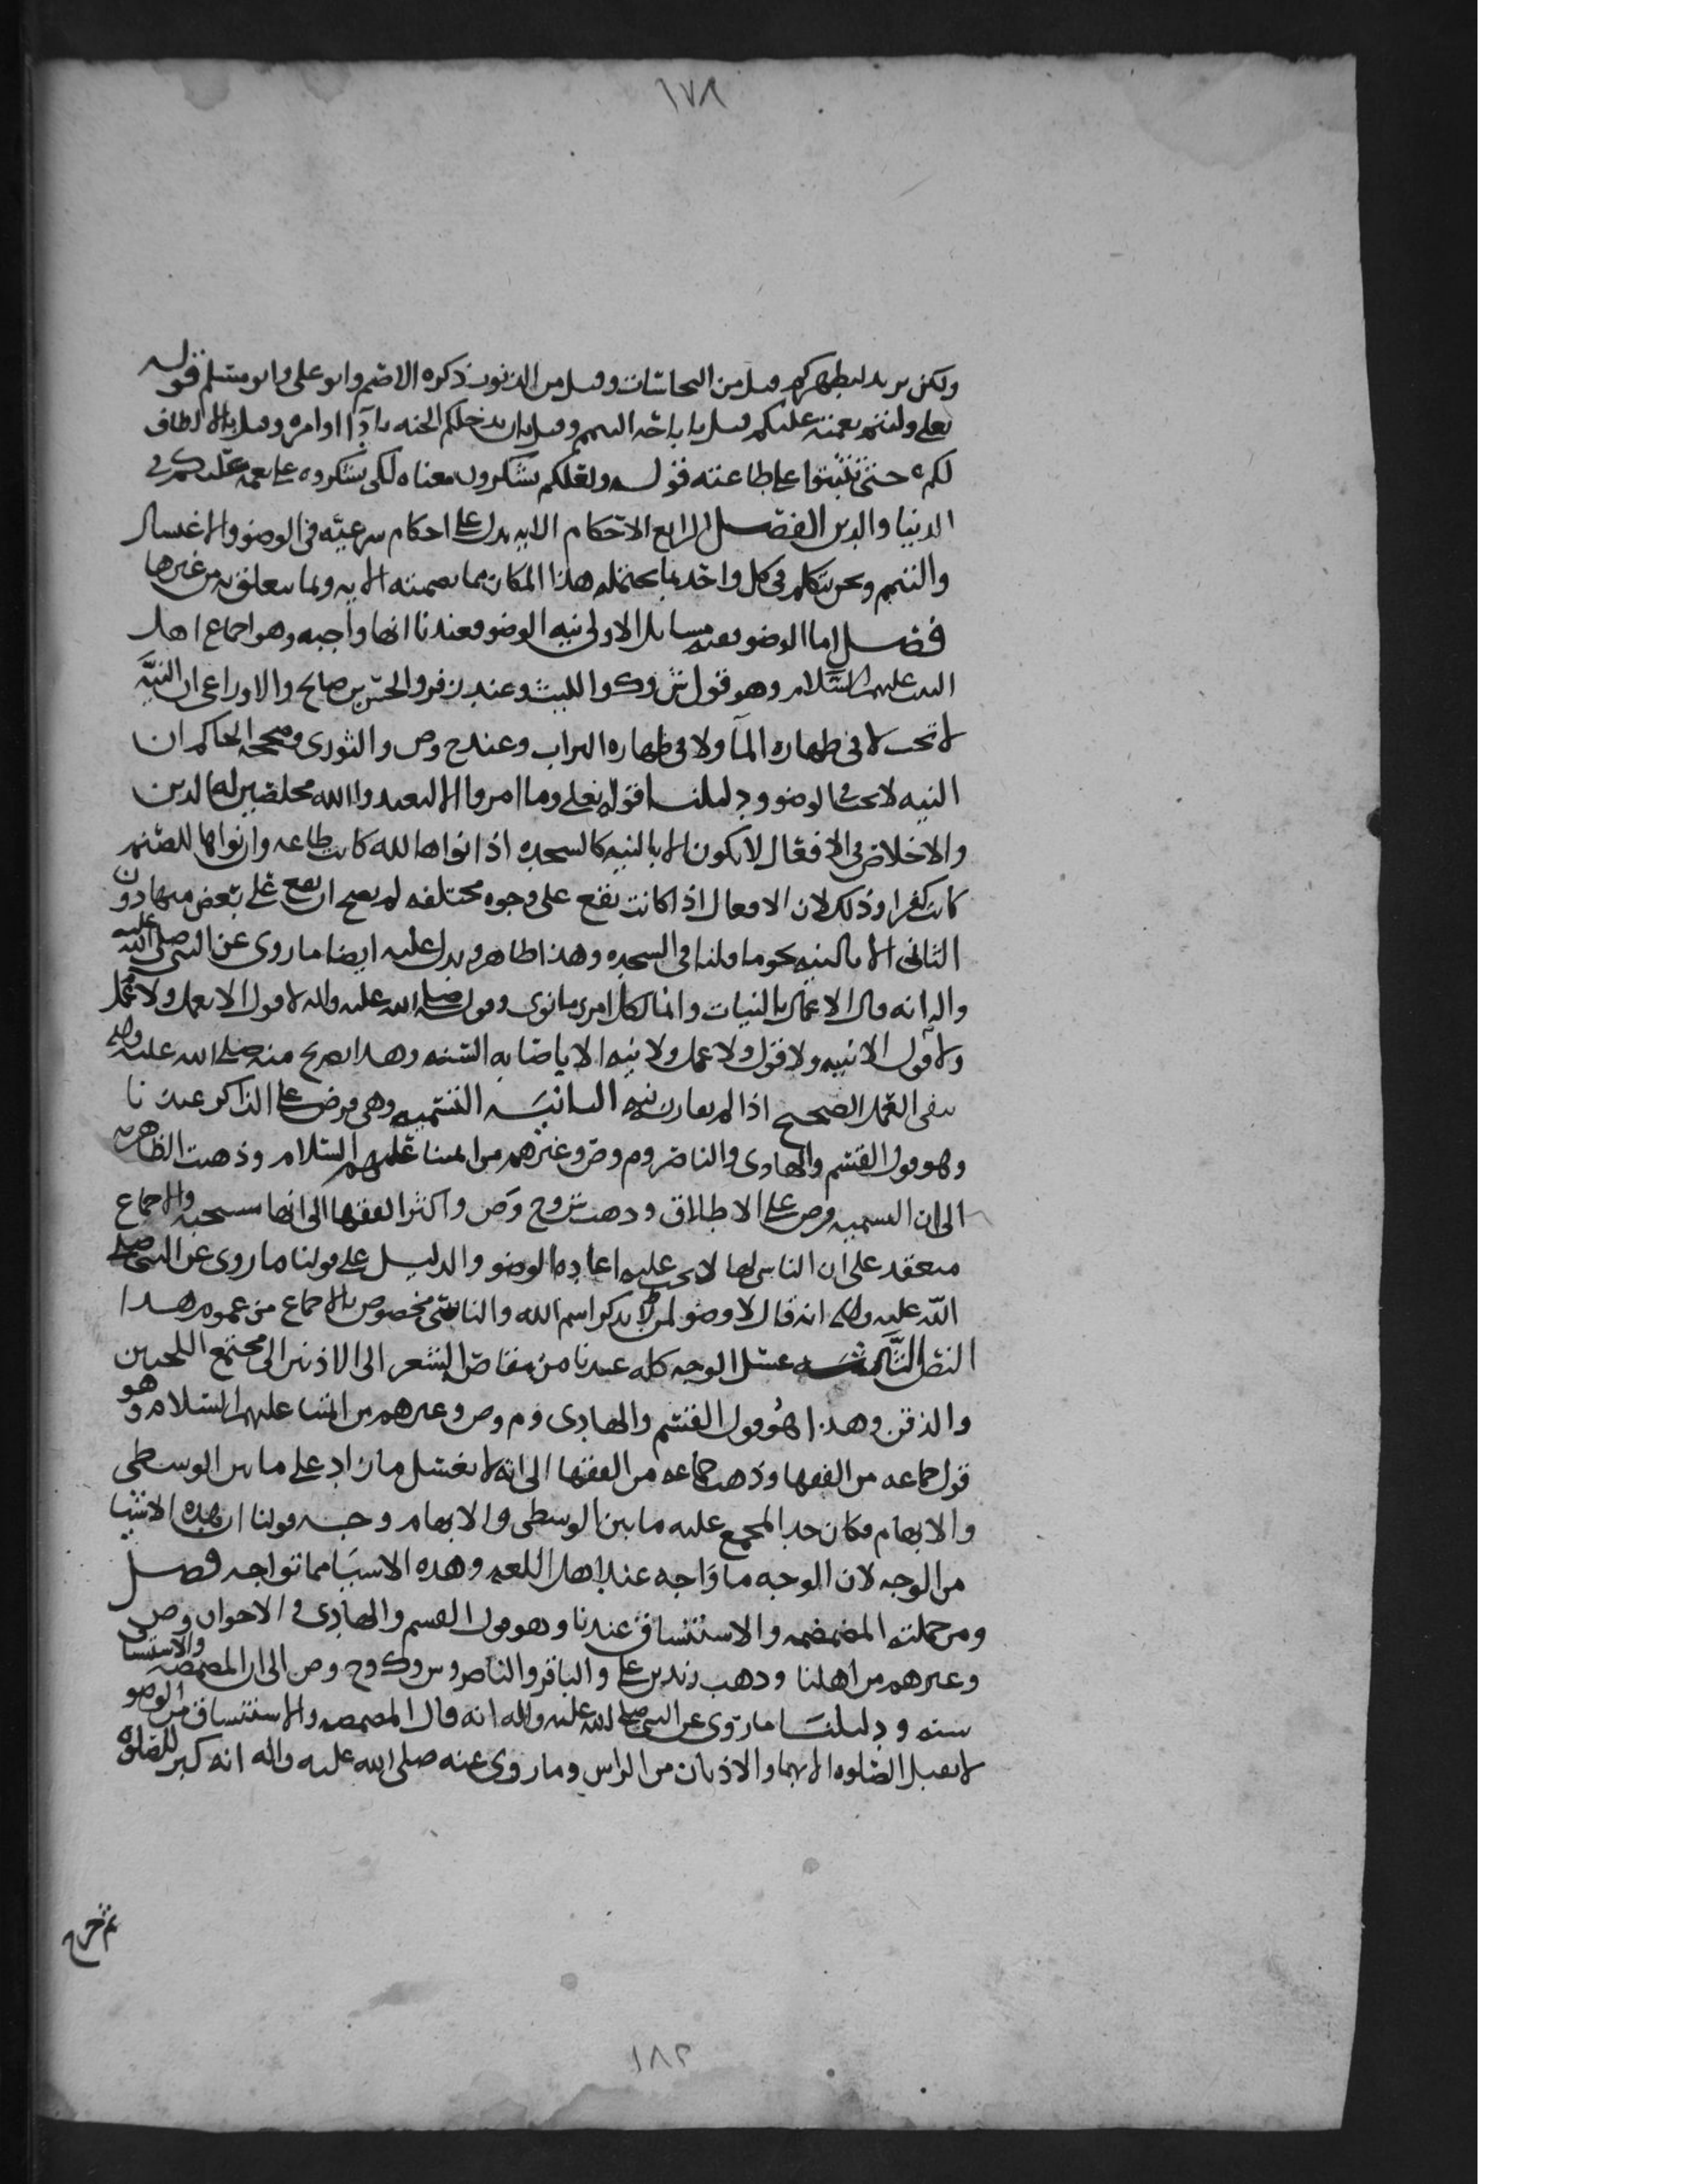 ١٧٨
ولكن يريد ليطهركم قيل من النجاسات وقيل من الذنوب ذكره الاصم وابو علي وابو مسلم قوله
تعلى وليتم نعمته عليكم قيل باباحة التيمم وقيل بان يدخلكم الجنه بادآ اوامره وقيل بالالطاف
لكم حتى تثبتوا على طاعته قوله ولعلكم تشكرون معناه لكي تشكروه على نعمه عليكم في
الدنيا والدين الفصل الرابع الاحكام الايه تدل على احكام شرعيه في الوضو والاغسال
والتيمم ونحن نتكلم في كل واحد بما يحتمله هذا المكان مما تضمنته الايه ومما يتعلق به من غيرها
فصل اما الوضو ففيه مسايل الاولى نيه الوضو فعندنا انها واجبه وهو اجماع اهل
البيت عليهم السلام وهو قول ش وك والليث وعند زفر والحسن بن صالح والاوزاعي ان النيَّه
لا تجب لا في طهاره المآ ولا في طهاره التراب وعند ح وص والثوري وصححه الحاكم ان
النيه لا تجب في الوضو ودليلنا قوله تعلى وما امروا الا ليعبدوا الله مخلصين له الدين
والاخلاص في الافعال لا يكون الا بالنيه كالسجده اذا نواها لله كانت طاعه وان نواها للصنم
كانت كفرا وذلك لان الافعال اذا كانت تقع على وجوه مختلفه لم يصح ان تقع على بعض منها دون
الثاني الا بالنيه نحو ما قلنا في السجده وهذا ظاهر ويدل عليه ايضا ما روي عن النبي صلى الله عليه
واله انه قال الاعمال بالنيات وانما لكل امرئ ما نوى وقوله صلى الله عليه واله لا قول الا بعمل ولا عمل
ولا قول الا بنيه ولا قول ولا عمل ولا نيه الا باصابه السنه وهذا تصريح منه صلى الله عليه واله
بنفي العمل الصحيح اذا لم يقارنه نيه الثانيَه التسميه وهي فرض على الذاكر عندنا
وهو قول القسم والهادي والناصر وم وص وغيرهم من ايمتنا عليهم السلام وذهبت الظاهريه
الى ان التسميه فرض على الاطلاق وذهب ش وح وص واكثر الفقها الى انها مستحبه والاجماع
منعقد على ان الناسي لها لا يجب عليه اعاده الوضو والدليل على قولنا ما روي عن النبي صلى
الله عليه واله انه قال لا وضو لمن لم يذكر اسم الله والناسي مخصوص بالاجماع من عموم هذا
النص الثَّالثه غسل الوجه كله عندنا من مقاص الشعر الى الاذنين الى مجتمع اللحيين
والذقن وهذا هُو قول القسم والهادي وم وص وغيرهم من ايمتنا عليهم السلام وهو
قول جماعه من الفقها وذهب جماعه من الفقها الى انه لا يغسل ما زاد على ما بين الوسطى
والابهام فكان حد المجمع عليه ما بين الوسطى والابهام وجه قولنا ان هذه الاشيا
من الوجه لان الوجه ما وَاجه عند اهل اللغه وهذه الاشيَا مما تواجه فصل
ومن جملته المضمضه والاستنشاق عندنا وهو قول القسم والهادي في الاحوال وص
وغيرهم من اهلنا وذهب زيد بن علي والباقر والناصر وش وك وح وص الى ان المضمضه والاستنشاق
سنه ودليلنَا ما روي عن النبي صلى الله عليه واله انه قال المضمضه والاستنشاق من الوضو
لا يقبل الصلوه الا بهما والاذنان من الراس وما روي عنه صلى الله عليه واله انه كبر للصلوه
ثم خرج
١٨٢